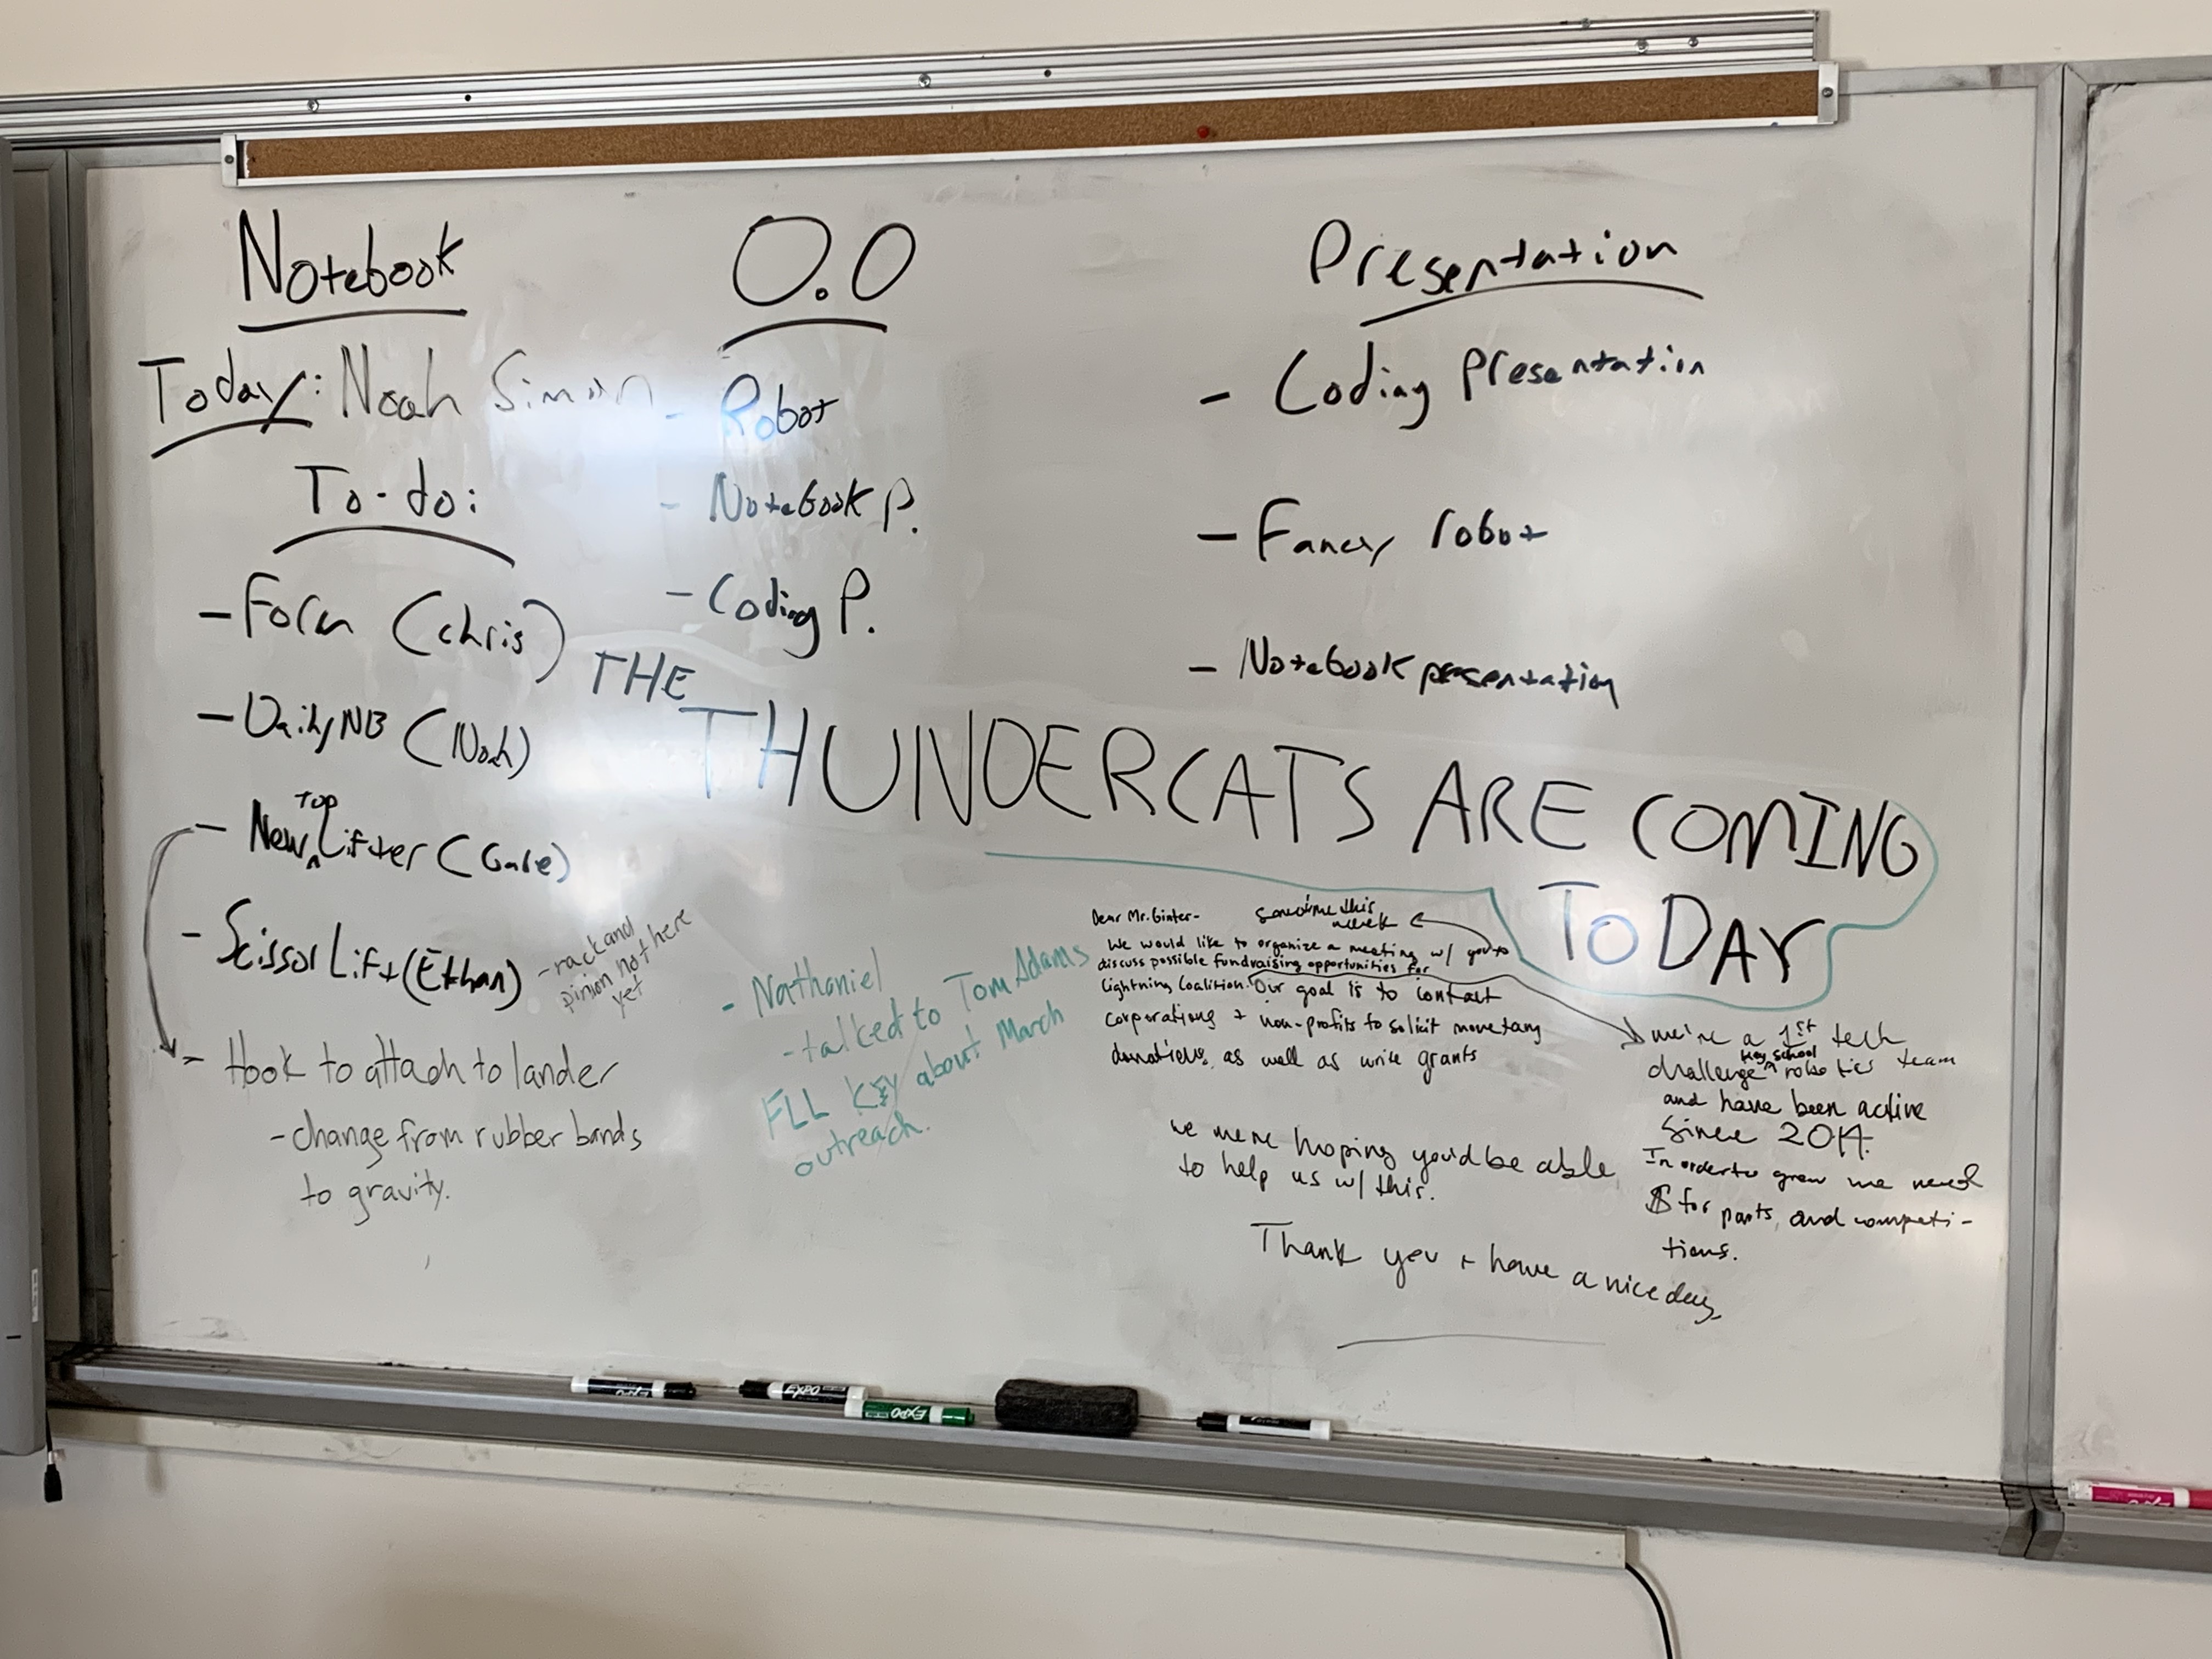 Notebook
Today: Noah Simon
To-do:
- Form (Chris)
- Daily NB (Noah)
- New Top Lifter (Gabe)
- Scissor Lift (Ethan)
- rack and
pinion not here
yet
- Hook to attach to lander
- change from rubber bands
to gravity.
O.O
- Robot
- Notebook P.
- Coding P.
Presentation
- Coding Presentation
- Fancy robot
- Notebook presentation
THE
THUNDERCATS ARE COMING
TODAY
- Nathaniel
- talked to Tom Adams
FLL Key about March
outreach.
Dear Mr. Ginter-
sometime this
week
We would like to organize a meeting w/ you to
discuss possible fundraising opportunities for
Lightning Coalition. Our goal is to contact
corporations + non-profits to solicit monetary
donations, as well as write grants
we're a 1st tech
challenge Key school robotics team
and have been active
since 2014.
In order to grow we need
$ for parts, and competi-
tions.
we were hoping you'd be able
to help us w/ this.
Thank you + have a nice day,
EXPO
EXPO
EXPO